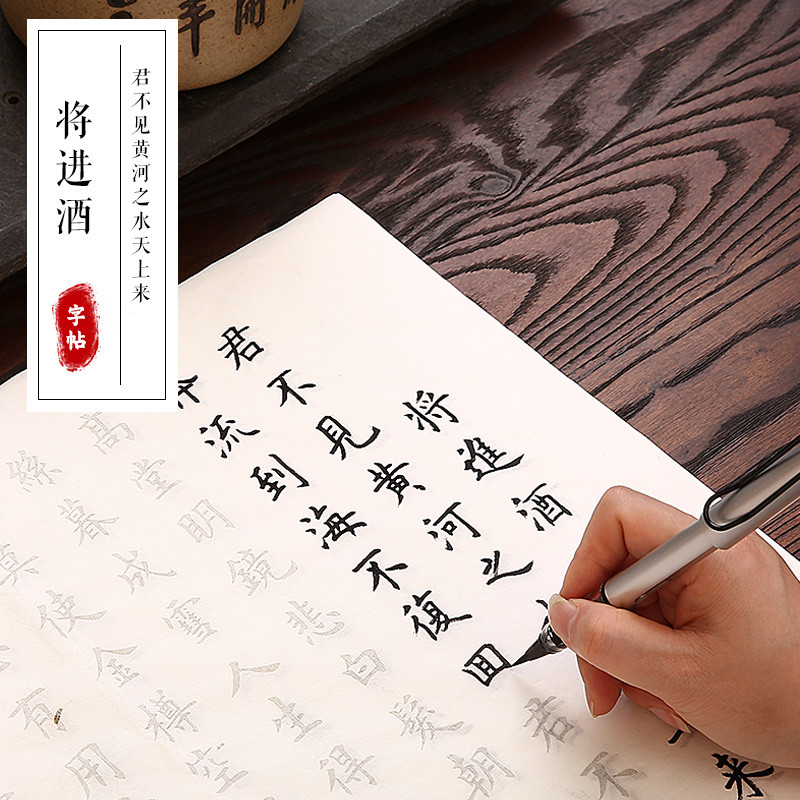 将进酒
君不见黄河之水天上来
字帖
将進酒
君不見黄河之
来
流到海不復回君不
高堂明鏡悲白髮朝
絲暮成雪人生得
使金樽空
有用